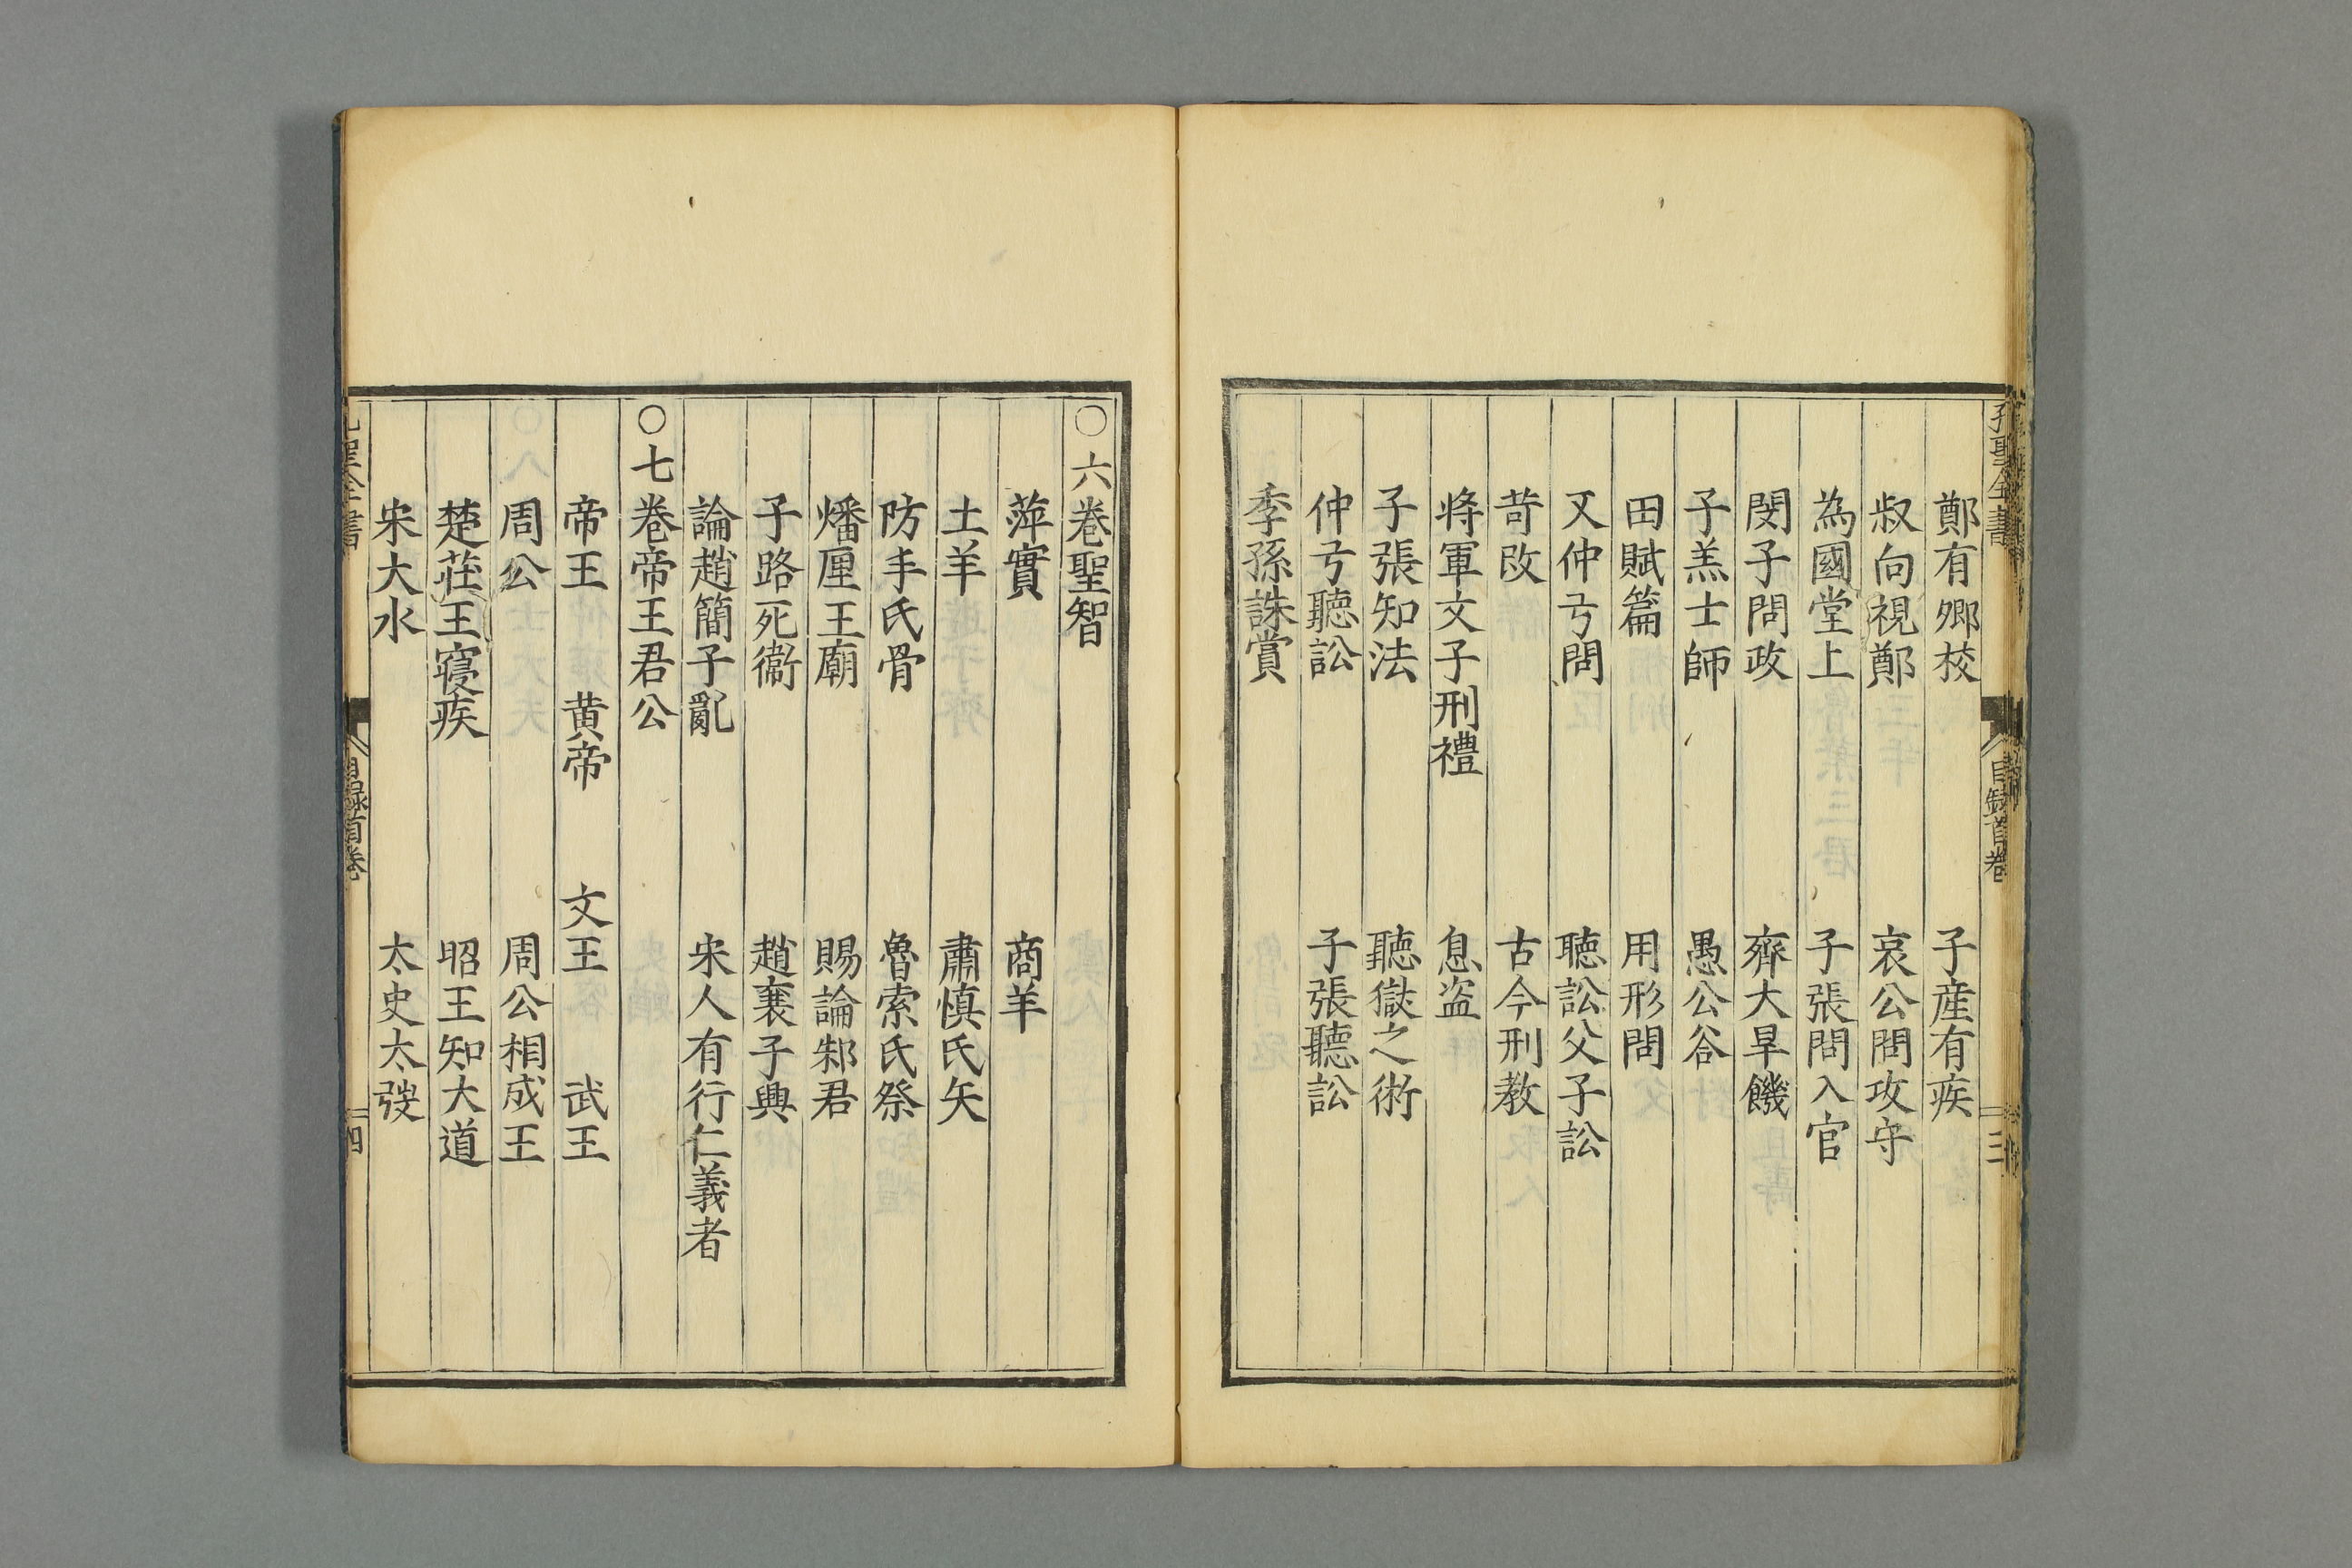 孔聖全書
目錄首卷
三
鄭有鄉校 子産有疾
叔向視鄭 哀公問攻守
為國堂上 子張問入官
閔子問政 齊大旱饑
子羔士師 愚公谷
田賦篇 用形問
又仲弓問 聴訟父子訟
苛政 古今刑教
将軍文子刑禮 息盗
子張知法 聽獄之術
仲弓聽訟 子張聽訟
季孫誅賞
○六卷聖智
萍實 商羊
土羊 肅慎氏矢
防丰氏骨 魯索氏祭
燔厘王廟 賜論邾君
子路死衞 趙襄子興
論趙簡子亂 宋人有行仁義者
○七卷帝王君公
帝王 黄帝 文王 武王
周公 周公相成王
楚莊王寝疾 昭王知大道
宋大水 太史太弢
孔聖全書
目録首卷
四